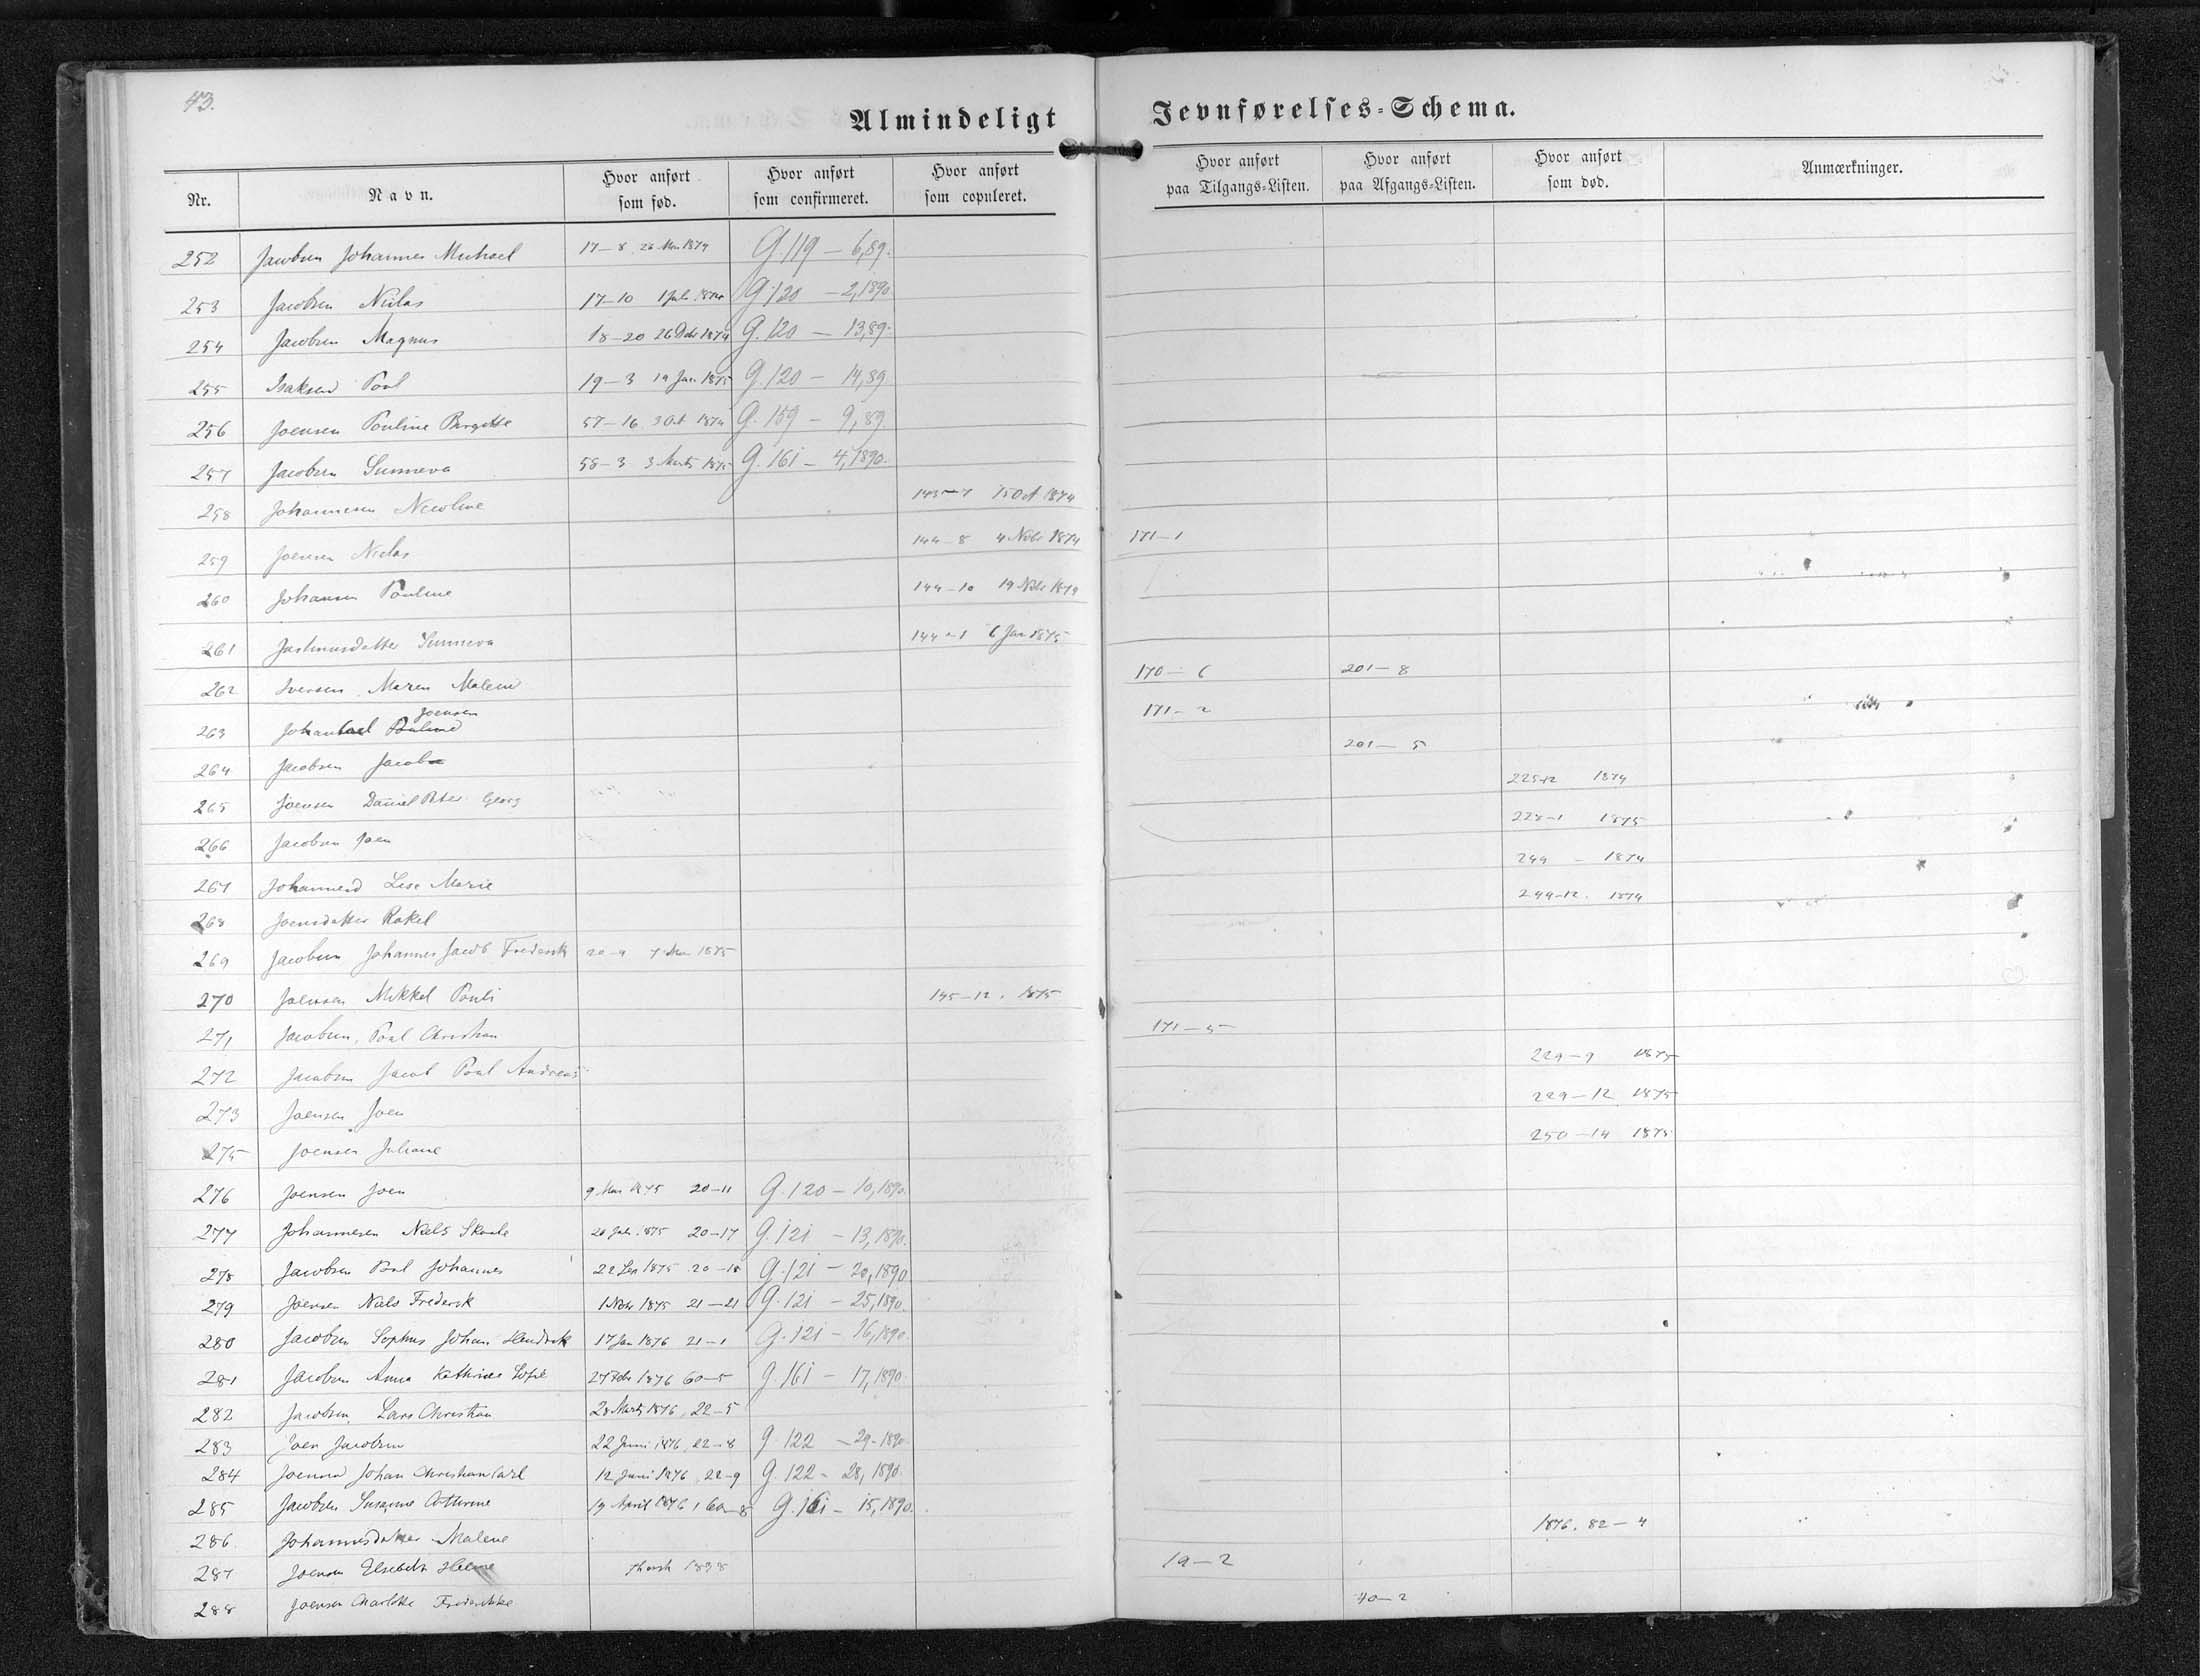 43.
Almindeligt Jevnførelses-Schema.
Nr. Navn. Hvor anført som fød. Hvor anført som confirmeret. Hvor anført som copuleret. Hvor anført paa Tilgangs-Listen. Hvor anført paa Afgangs-Listen. Hvor anført som død. Anmærkninger.
252 Jacobsen Johannes Michael 17-8 G. 119 - 6,89.
253 Jacobsen Niclas 17-10 G. 120 - 2,1890
254 Jacobsen Magnus 18-20 26 Debr 1874 G. 120 - 13,89.
255 Isaksen Poul 19-3 19 Jan. 1875 G. 120 - 14,89.
256 Joensen Pouline Birgitte 57-16 3 Oct 1874 G. 159 - 9,89.
257 Jacobsen Sunneva 58-3 3 Marts 1875 G. 161 - 4,1890.
258 Johannesen Nicoline 15 Oct 1874
259 Joensen Niclas 144-8 4 Nobr 1874 171-1
260 Johansen Pouline 144-10 19 Nobr 1874
261 Sunneva 144-1 6 Jan 1875
262 Iversen Maren Malene 170-6 201-8
263 Joensen 171-2
264 Jacobsen Jacob 201-5
265 Joensen Daniel Peter Georg 1874
266 Jacobsen Joen 228-1 1875
267 Lise Marie 249 - 1874
268 Joensdatter Rakel 249-12. 1874
269 Jacobsen Johannes Jacob Frederik 1875
270 Joensen Mikkel Pauli 145-12. 1875
271 Jacobsen, Poul Christian 171-5
272 Jacobsen Jacob Poul Andreas 229-9 1875
273 Joensen Joen 229-12 1875
275 Joensen Juliane 250-14 1875
276 Joensen Joen 9 Mai 1875 20-11 G. 120 - 10,1890.
277 Johannesen Niels Skaale 1875 20-17 G. 121 - 13,1890.
278 Jacobsen Poul Johannes 22 Sep 1875 20-18 G. 121 - 20,1890
279 Joensen Niels Frederik 1 Nobr 1875 21-21 G. 121 - 25,1890.
280 Jacobsen Sophus Johan Hendrik 17 Jan 1876 21-1 G. 121 - 16,1890.
281 Jacobsen Anna Kathrine Sofie 27 Febr 1876 60-5 G. 161 - 17,1890.
282 Jacobsen, Lars Christian 28 Marts 1876, 22-5
283 Joen Jacobsen 22 Juni 1876, 22-8 G. 122 - 29-1890
284 Joensen Johan Christian Carl 12 Juni 1876, 22-9 G. 122 - 28, 1890.
285 Jacobsen Susanne Cathrine 19 April 1876, 60-8 G. 161 - 15,1890.
286. Johannesdatter Malene 1876. 82-4
287 Joensen Elsebeth Helene 1838 19-2
288 Joensen Charlotte Frederikke 40-2